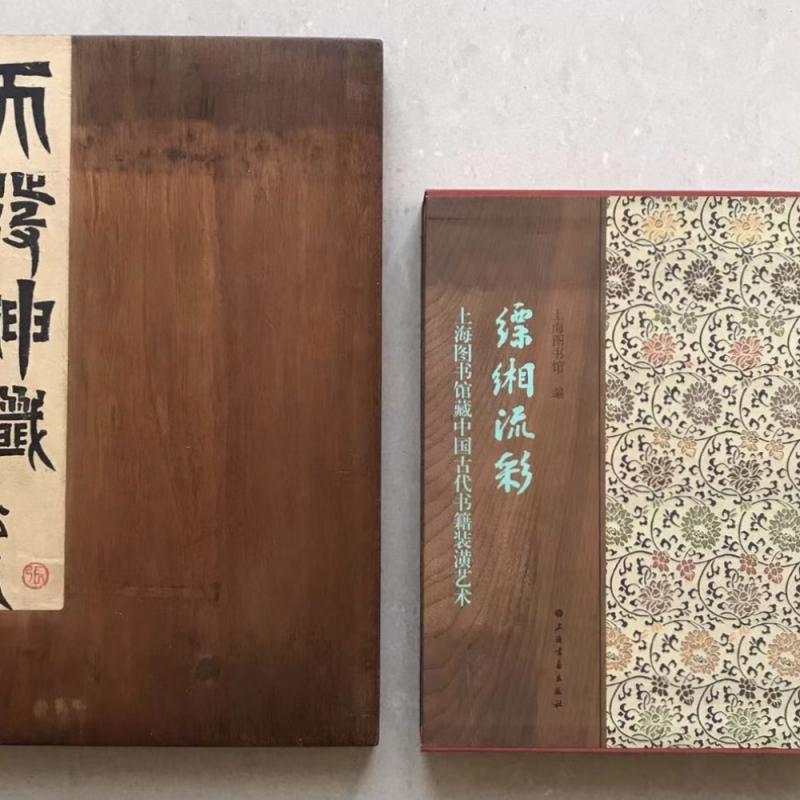 天發神讖
上海图书馆 编
缥缃流彩
上海图书馆藏中国古代书籍装潢艺术
上海書畫出版社